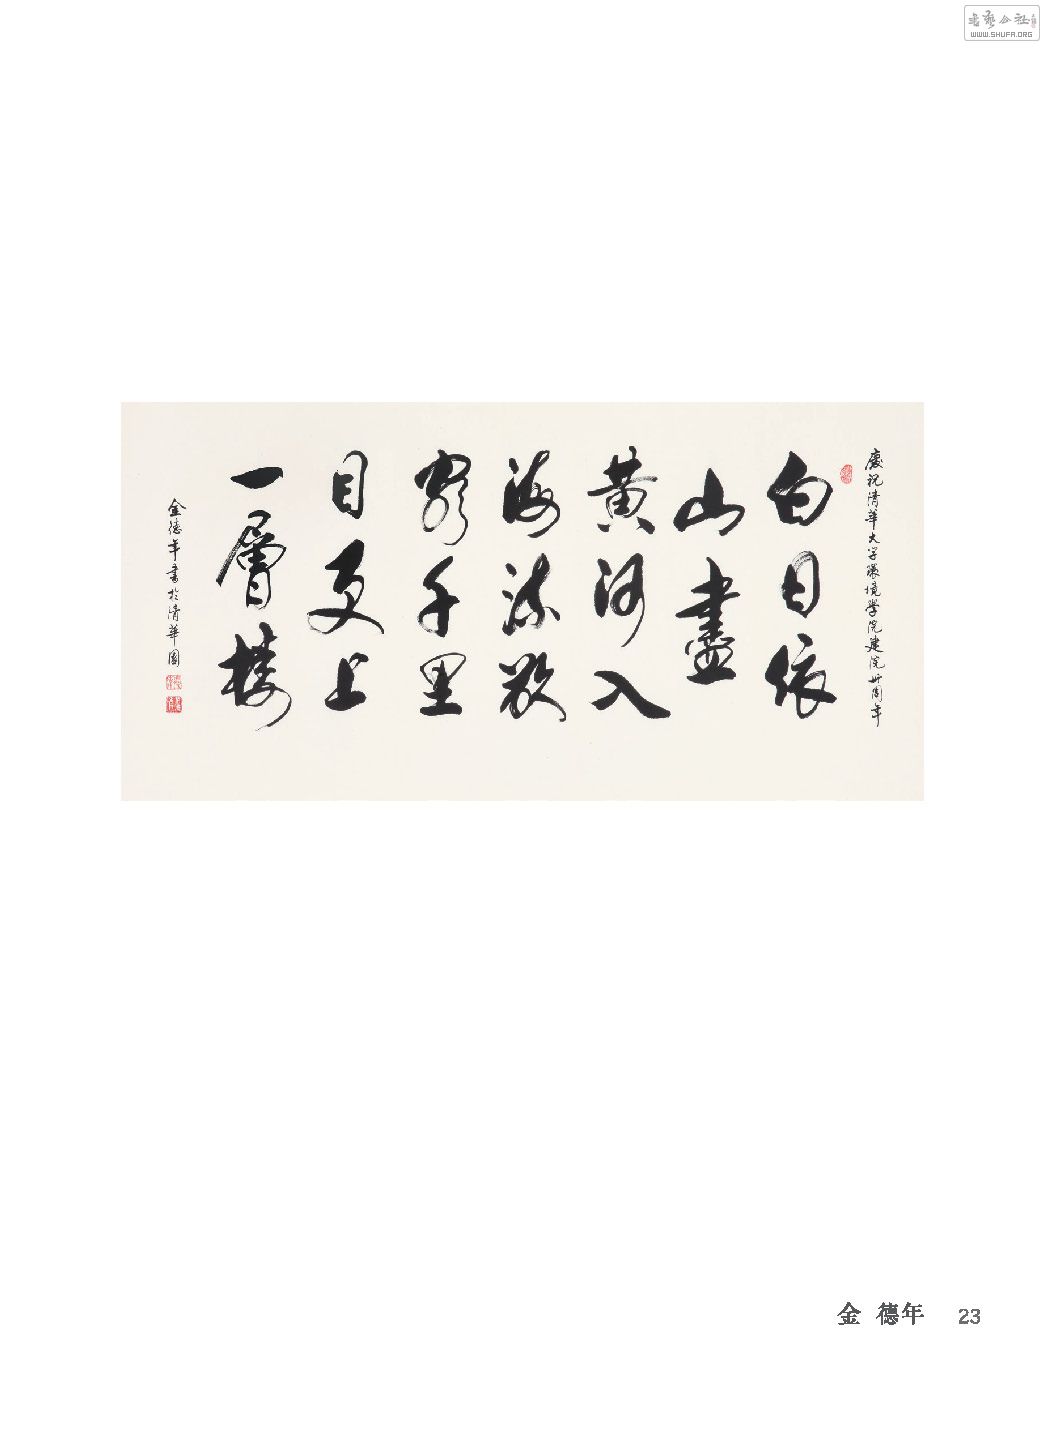 書藝公社
WWW.SHUFA.ORG
慶祝清華大学環境學院建院卅周年
白日依
山盡
黄河入
海流欲
窮千里
目更上
一層樓
金德年書於清華園
金 德年 23